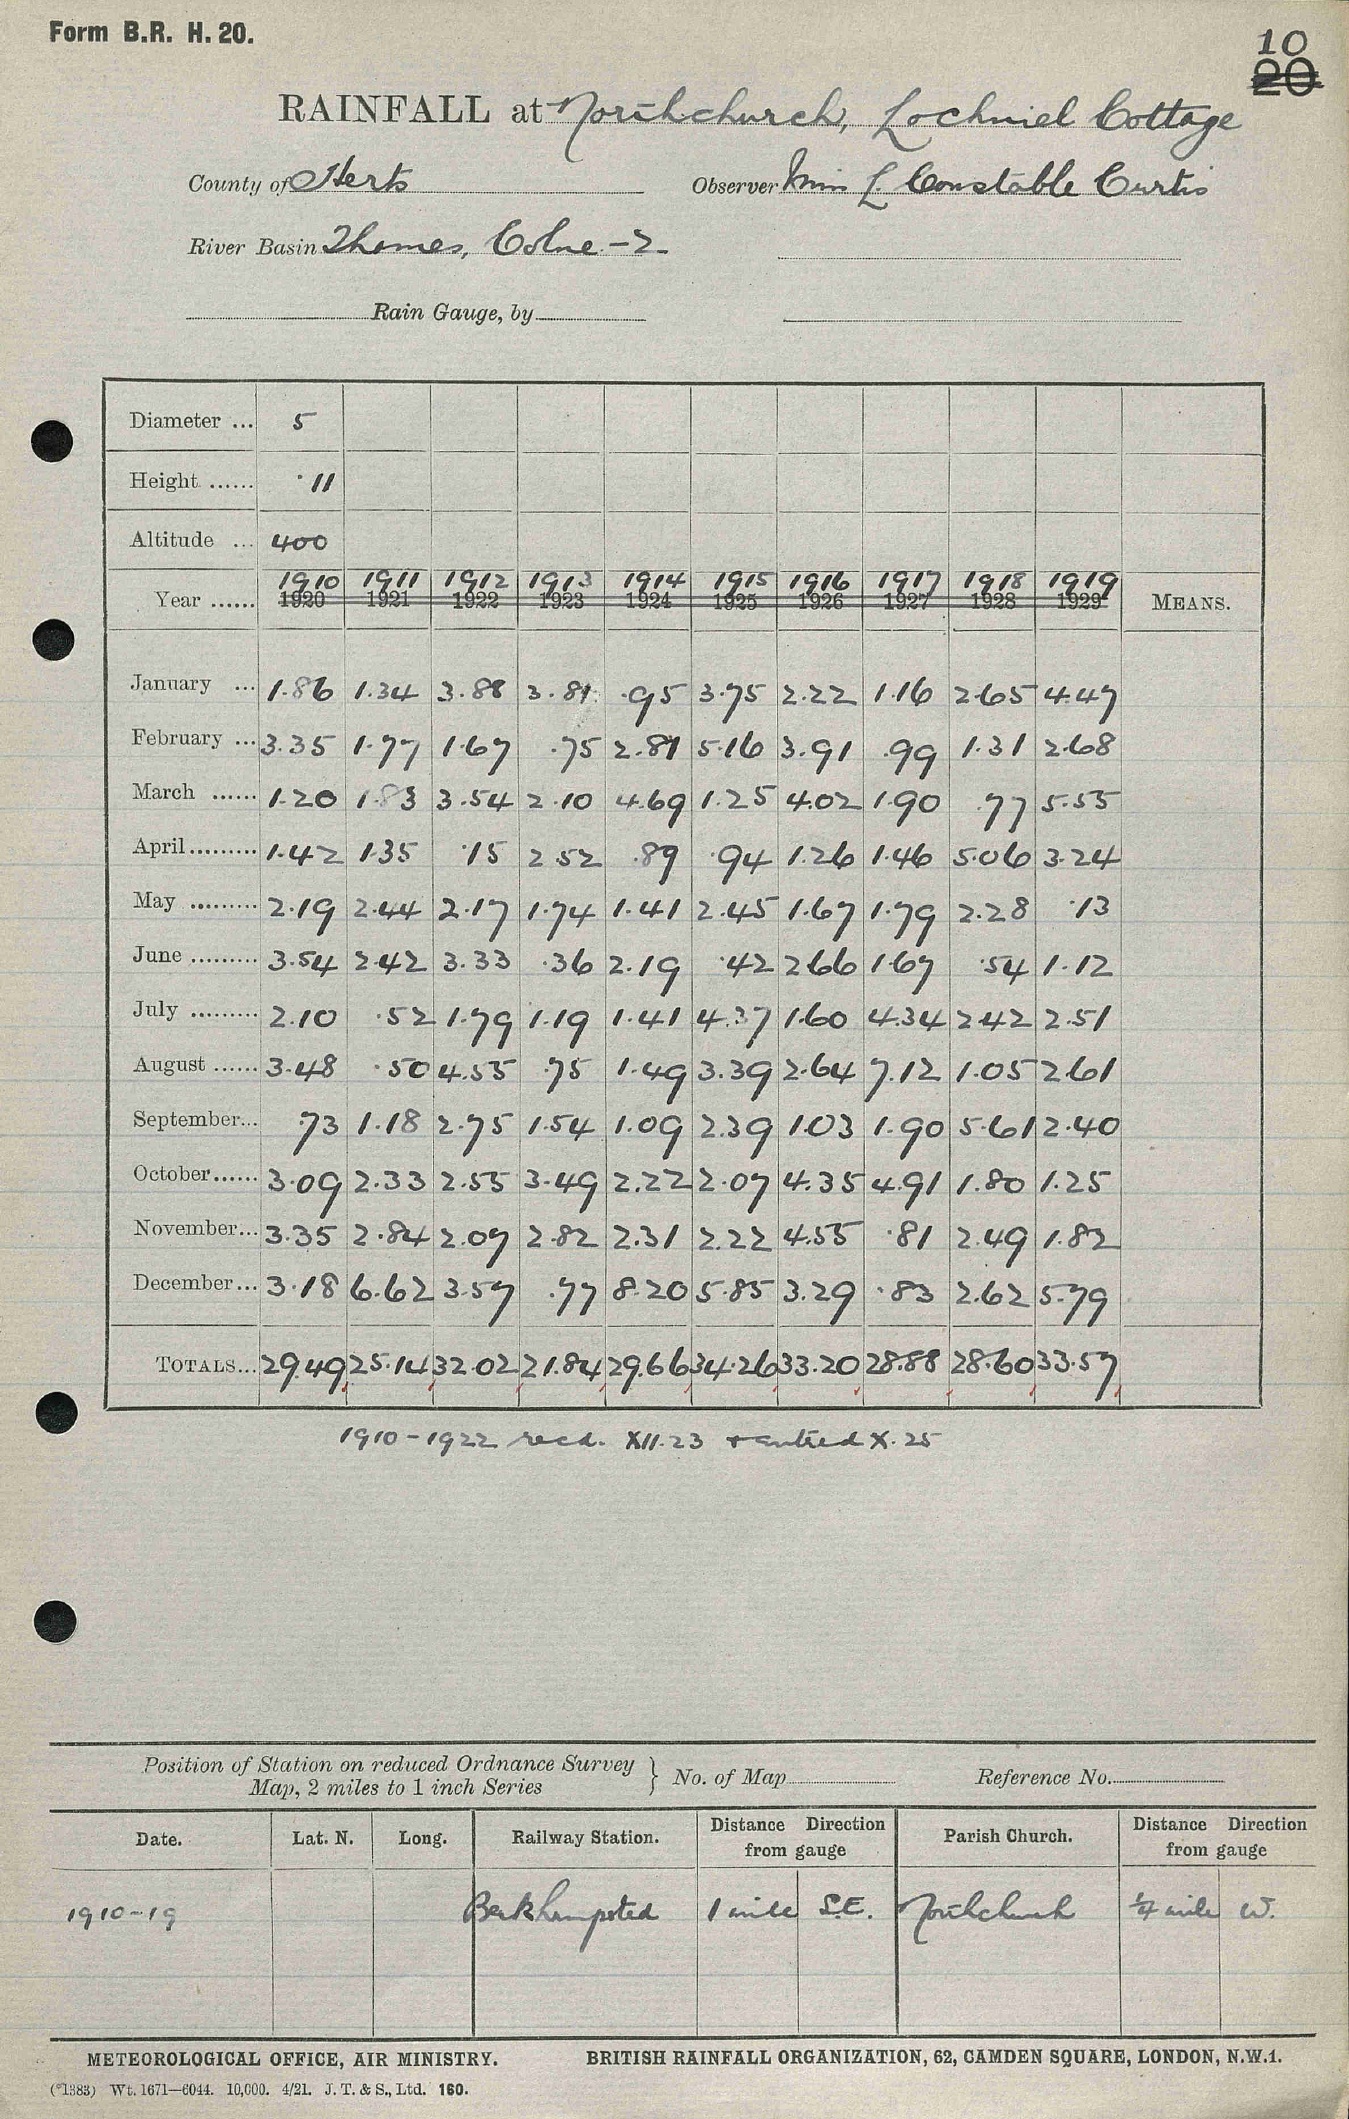 Form B.R. H. 20.
10
20
RAINFALL at Northchurch, Lochniel Cottage
County of Herts Observer Miss L. Constable Curtis
River Basin Thames, Colne - 2
Rain Gauge, by
Diameter ... 5
Height ...... ·11
Altitude ... 400
1910 1911 1912 1913 1914 1915 1916 1917 1918 1919
Year ...... 1920 1921 1922 1923 1924 1925 1926 1927 1928 1929 MEANS.
January ... 1.86 1.34 3.88 3.81 .95 3.75 2.22 1.16 2.65 4.47
February ... 3.35 1.77 1.67 .75 2.81 5.16 3.91 .99 1.31 2.68
March ...... 1.20 1.83 3.54 2.10 4.69 1.25 4.02 1.90 .77 5.55
April ......... 1.42 1.35 .15 2.52 .89 .94 1.26 1.46 5.06 3.24
May ......... 2.19 2.44 2.17 1.74 1.41 2.45 1.67 1.79 2.28 .13
June ......... 3.54 2.42 3.33 .36 2.19 .42 2.66 1.67 .54 1.12
July ......... 2.10 .52 1.79 1.19 1.41 4.37 1.60 4.34 2.42 2.51
August ...... 3.48 .50 4.55 .75 1.49 3.39 2.64 7.12 1.05 2.61
September... .73 1.18 2.75 1.54 1.09 2.39 1.03 1.90 5.61 2.40
October...... 3.09 2.33 2.55 3.49 2.22 2.07 4.35 4.91 1.80 1.25
November... 3.35 2.84 2.07 2.82 2.31 2.22 4.55 .81 2.49 1.82
December... 3.18 6.62 3.57 .77 8.20 5.85 3.29 .83 2.62 5.79
TOTALS... 29.49 25.14 32.02 21.84 29.66 34.26 33.20 28.88 28.60 33.57
1910-1922 recd. XII.23 + entred X.25
Position of Station on reduced Ordnance Survey
Map, 2 miles to 1 inch Series } No. of Map Reference No.
Date. Lat. N. Long. Railway Station. Distance from gauge Direction Parish Church. Distance from gauge Direction
1910-19 Berkhampsted 1 mile S.E. Northchurch ¼ mile W.
METEOROLOGICAL OFFICE, AIR MINISTRY. BRITISH RAINFALL ORGANIZATION, 62, CAMDEN SQUARE, LONDON, N.W.1.
(°1383) Wt. 1671—6044. 10,000. 4/21. J. T. & S., Ltd. 160.